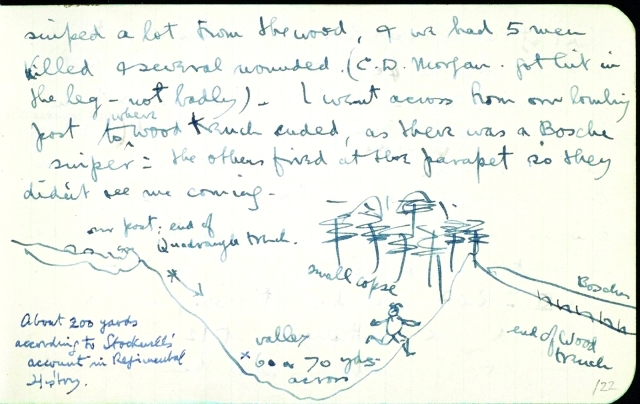 sniped a lot from the wood, & we had 5 men
killed & several wounded. (C.D. Morgan. got hit in
the leg – not badly) – I went across from our bombing
post to where wood trench ended, as there was a Bosche
sniper = the others fired at the parapet so they
didn't see me coming –
our post; end of
Quadrangle trench.
small copse
Bosches
end of Wood
trench
valley
x 60 or 70 yds
across
About 200 yards
according to Stockwell's
account in Regimental
History.
/22